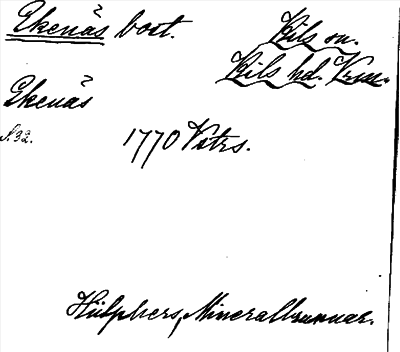 Ekenäs bost. Kils sn.
Kils hd. Vrml.
Ekenäs
S. 32.
1770 Vttrs.
Hülphers, Mineralbrunnar.